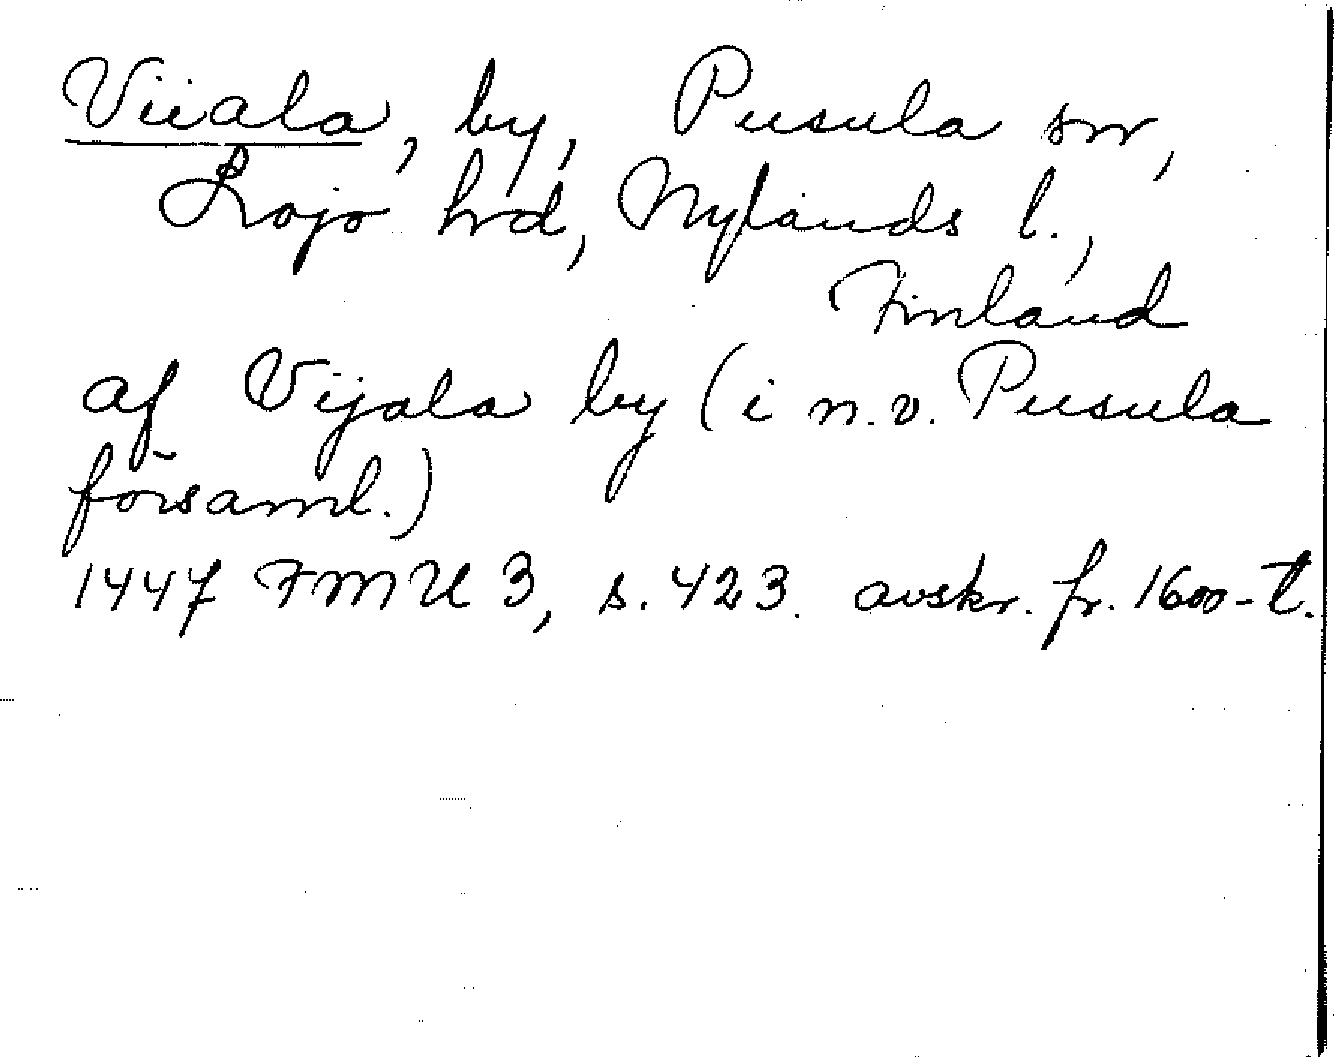 Viiala, by, Pusula sn,
Lojo hrd, Nylands l.,
Finland
af Vijala by (i n.v. Pusula
församl.)
1447 FMU 3, s. 423. avskr. fr. 1600-t.